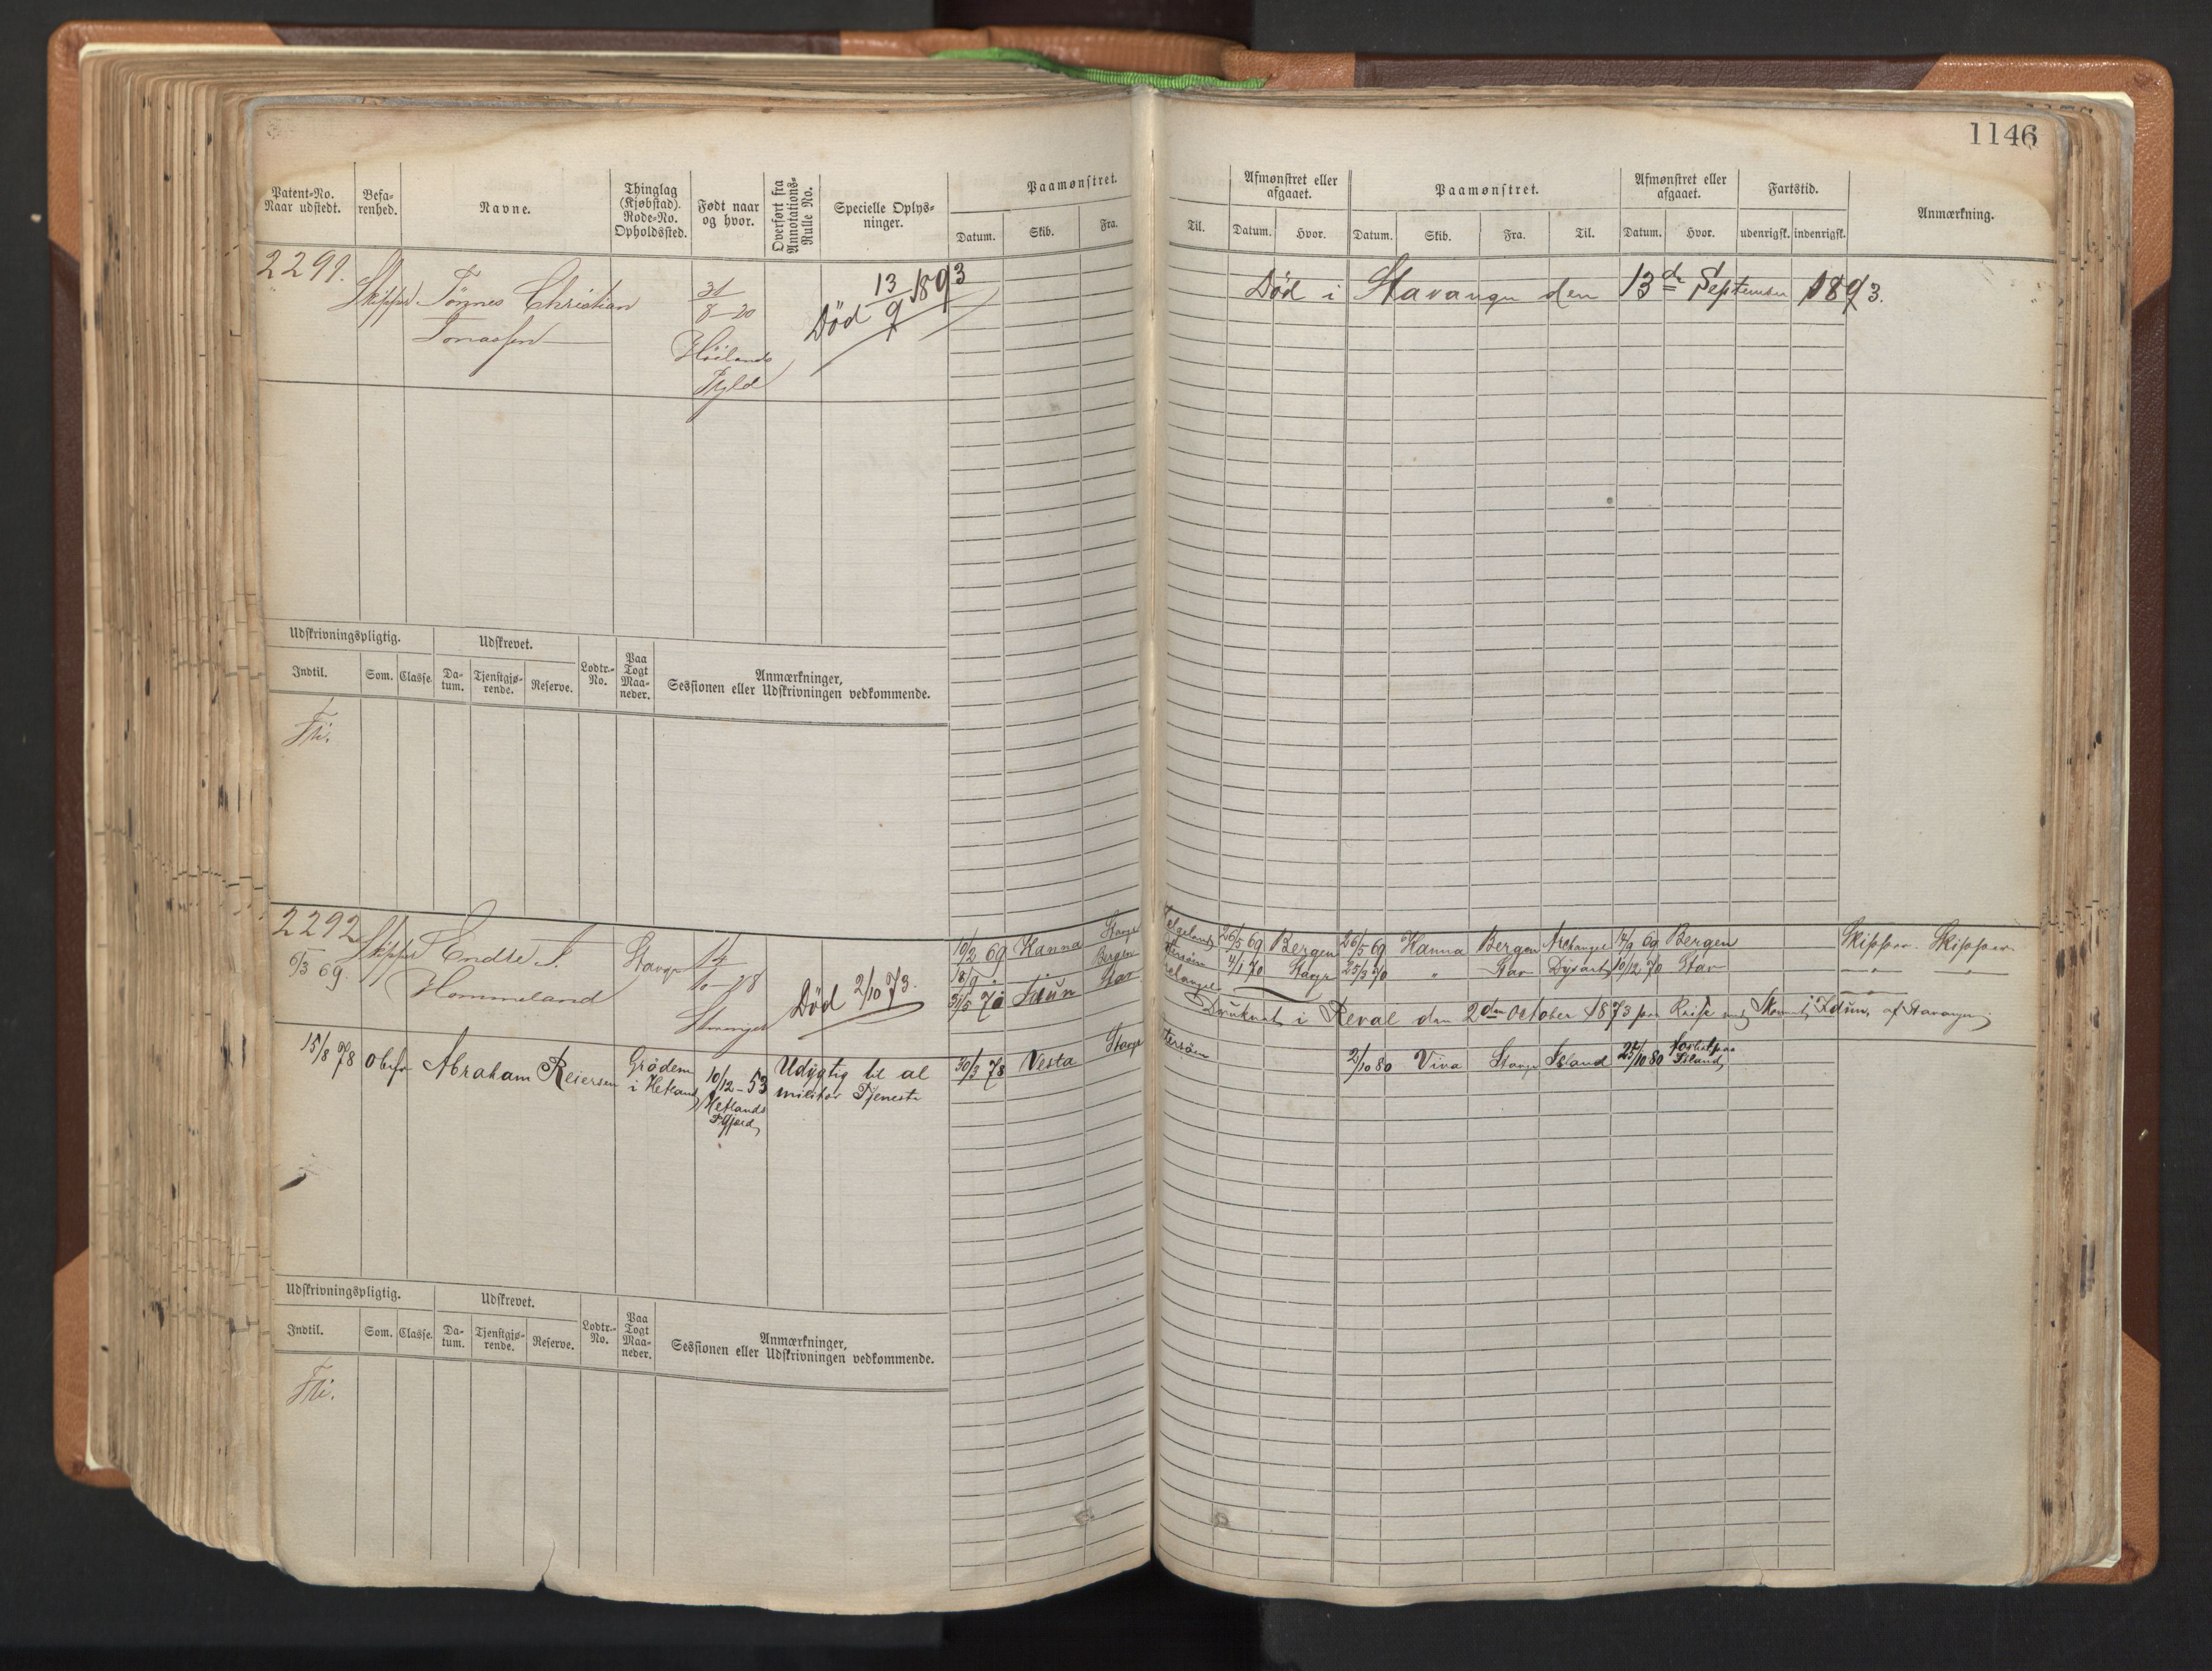 1146
Patent-No. Naar udstedt. Befa-renhed. Navne. Thinglag (Kjøbstad). Rode-No. Opholdssted. Født naar og hvor. Overført fra Annotations-Rulle No. Specielle Oplys-ninger. Paamønstret. Afmønstret eller afgaaet. Paamønstret. Afmønstret eller afgaaet. Fartstid. Anmærkning.
Datum. Skib. Fra. Til. Datum. Hvor. Datum. Skib. Fra. Til. Datum. Hvor. udenrigsk. indenrigsk.
2291. Skipper Tönnes Christian 31/8-20 Død 13/9 1893 Død i Stavanger den 13de September 1893.
Jonassen Höilands
Pgld
Udskrivningspligtig. Udskrevet. Lodtr.-No. Paa Togt Maa-neder. Anmærkninger, Sessionen eller Udskrivningen vedkommende.
Indtil. Som. Classe. Da-tum. Tjenstgjø-rende. Reserve.
Fri.
2292 Skipper Endre S. Stavgr 10/2 69 Hanna Stavgr 26/5 69 Bergen 26/5 69 Hanna Bergen Archangel 17/9 69 Bergen Skipper. Skipper
6/3 69. Hommeland Stavanger Død 2/10 73. 18/9 " Bergen 4/1 70 Stavgr 23/3 70 " Stav Dysart 10/12 70 Stav
31/5 70 Idun Stav
Druknet i Reval den 2den October 1873 paa Reise med Idun, af Stavanger
15/8 78 Obefr Abraham Reiersen Grödem i Hetland 10/12-53 Udygtig til al 30/3 78 Vesta Stavgr 2/10 80 Viva Stavgr Island 25/10 80 forlist paa Island
Hetlands militær Tjeneste
Pgjæld
Udskrivningspligtig. Udskrevet. Lodtr.-No. Paa Togt Maa-neder. Anmærkninger, Sessionen eller Udskrivningen vedkommende.
Indtil. Som. Classe. Da-tum. Tjenstgjø-rende. Reserve.
Fri.